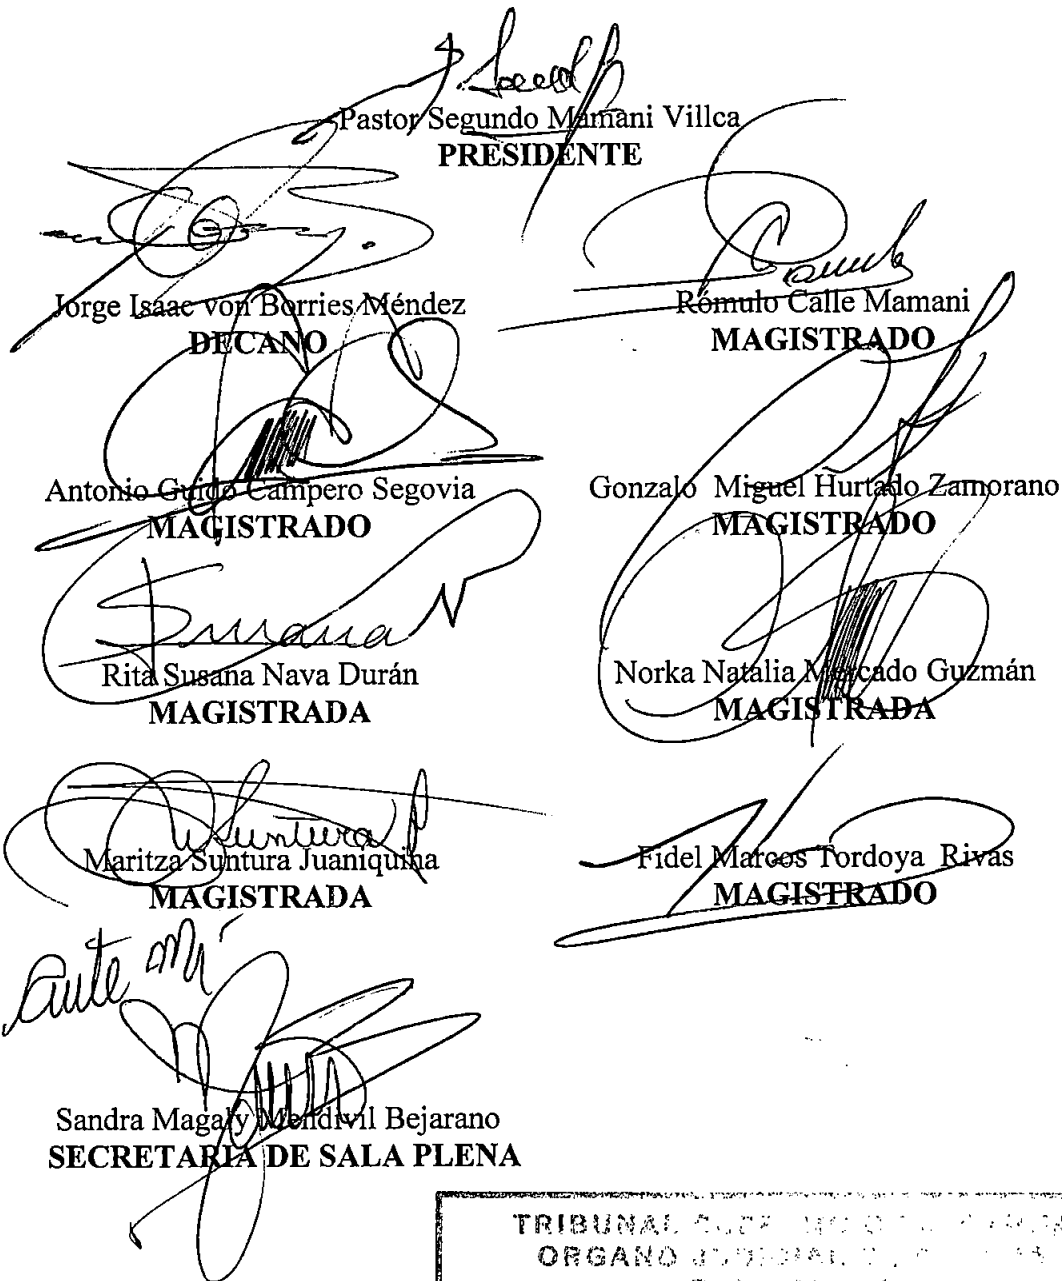 Pastor Segundo Mamani Villca
PRESIDENTE
Jorge Isaac von Borries Méndez
DECANO
Rómulo Calle Mamani
MAGISTRADO
Antonio Guido Campero Segovia
MAGISTRADO
Gonzalo Miguel Hurtado Zamorano
MAGISTRADO
Rita Susana Nava Durán
MAGISTRADA
Norka Natalia Mercado Guzmán
MAGISTRADA
Suntura
Maritza Suntura Juaniquina
MAGISTRADA
Fidel Marcos Tordoya Rivas
MAGISTRADO
Ante Mí
Sandra Magaly Mendivil Bejarano
SECRETARIA DE SALA PLENA
TRIBUNAL
ORGANO